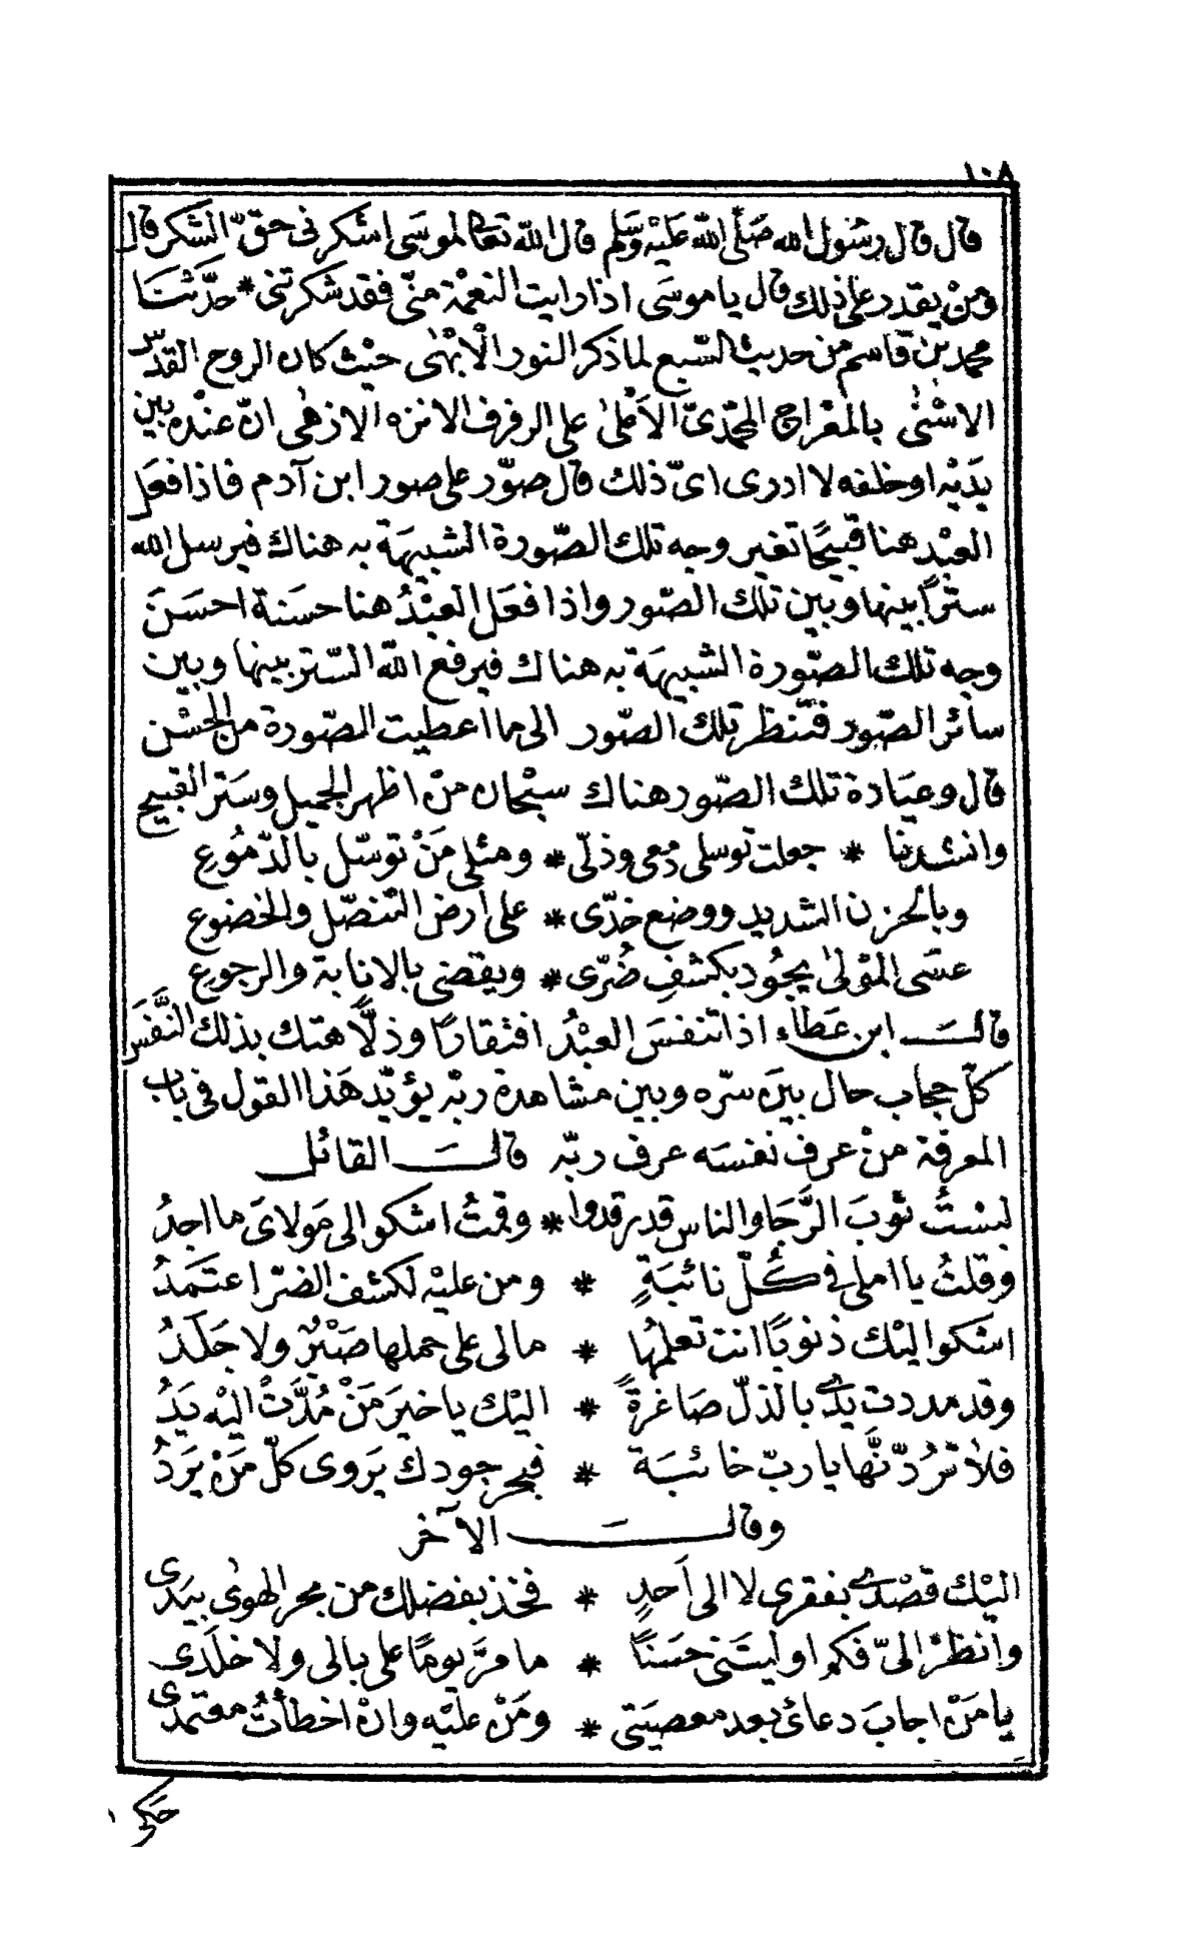 ١٠٨
قال قال رسول الله صَلَّى الله عَلَيْه وَسَلم قال الله تعالى لموسَى اشكرنى حقّ الشكر قال
ومَنْ يقدر على ذلك قال يا موسَى اذا رايت النعْمة منّى فقد شكرتنى * حدّثنَا
محمد بن قاسم من حديث السّبع لما ذكر النور الْابْهٰى حيْث كان الروح القدّس
الاسْنٰى بالمعْراج المحمّدىّ الاَعْلىٰ على الرفرف الانزه الازهٰى انّ عنْده بين
يدَيْه او خلفه لا ادرى اىّ ذلك قال صوّر على صور ابن آدم فاذا فعَل
العبْد هنا قبيحًا تغير وجه تلك الصّورة الشبيهَة به هناك فيرسل الله
ستْرًا بينها وبين تلك الصّور واذا فعَل العبْدُ هنا حسَنة احسَنَ
وجه تلك الصّورة الشبيهَة به هناك فيرفع الله السّتر بينها وبين
سائر الصّور فتنظر تلك الصّور الى ما اعطيت الصّورة من الحسْن
قال وعبَادة تلك الصّور هناك سبْحان منْ اظهر الجميل وسَتر القبيح
وانشدنا * جعلت توسلى دمعى وذلّى * ومثلى مَنْ توسّل بالدّمُوعِ
وبالحزن الشديد ووضع خدّى * على ارض التنصّل والخضوع
عسَى الموْلىٰ يجُود بكشفِ ضُرّى * ويقضى بالانابة والرجوع
قالــَ ابن عَطاء اذا تنفسَ العبْدُ افتقارًا وذلًّا هتك بذلك النَّفَسَ
كلّ حجاب حال بيَن سرّه وبين مشاهدة ربّه يؤيّد هَذا القول فى باب
المعرفة منْ عرف نفسَه عرف ربّه قالــَ القائل
لبسْتُ ثوْبَ الرَّجَا والناس قد رقدوا * وقمتُ اشكو الى مَولاىَ ما اجدُ
وقلتُ يا املى فى كُلّ نائبَةٍ * ومن عليْه لكشف الضرّ اعتَمَدُ
اشكو اليْك ذنوبًا انت تعلمُها * مالى على حملها صَبْرٌ ولا جَلَدُ
وقد مددت يدى بالذلّ صَاغرةً * اليْك يا خيرَ مَنْ مُدَّتْ اليْه يَدُ
فلا تَرُدّنَّها يا ربّ خائبَة * فبحر جودك يَروى كلّ مَنْ يَرَدُ
وقالــَ الآخر
اليْك قصْدى بفقرى لا الى اَحدٍ * فخذ بفضلك من بحر الهوىٰ بيَدى
وانظرْ الىّ فكم اوليتَنى حسَنًا * ما مرَّ يومًا على بالى ولا خلَدى
يا مَنْ اجابَ دعائ بعد معصيَتى * ومَنْ عليْه وانْ اخطأتُ معتمدى
حَكى